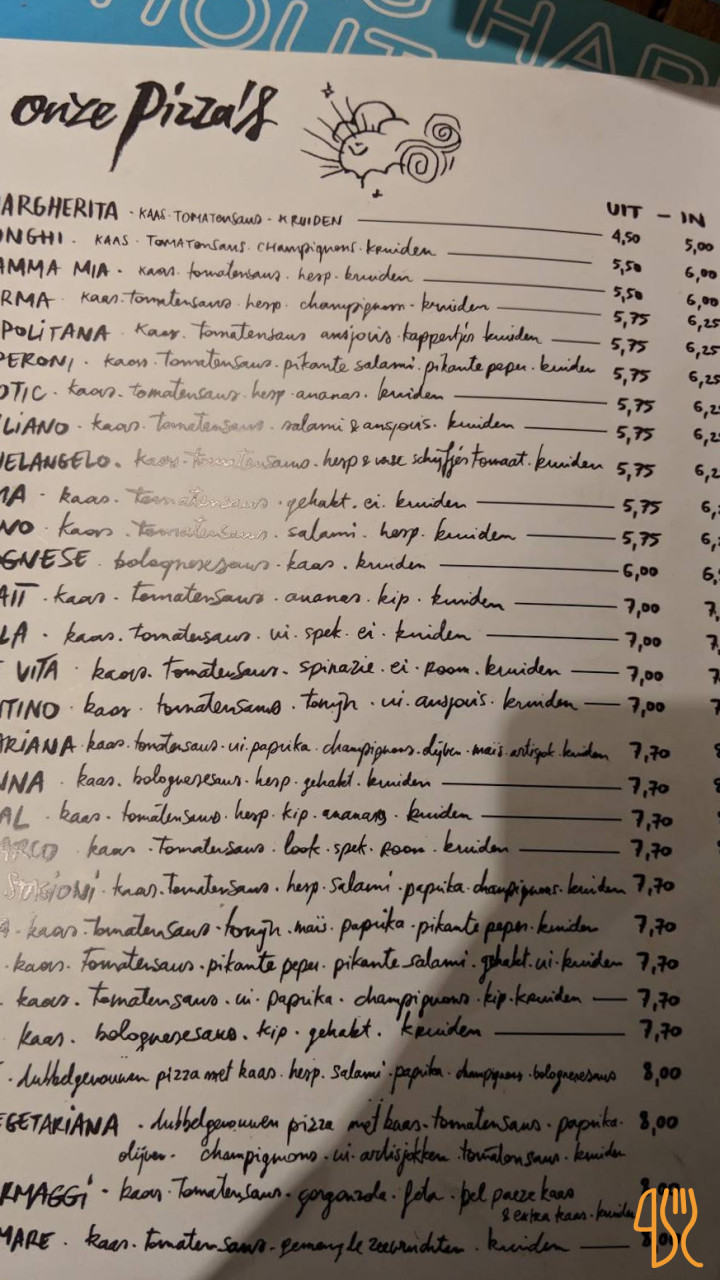 HOUT HAR
onze Pizza's
UIT - IN
MARGHERITA · KAAS · TOMATENSAUS · KRUIDEN 4,50 5,00
NGHI · KAAS · TOMATENSAUS · CHAMPIGNONS · KRUIDEN 5,50 6,00
AMMA MIA · kaas · tomatensaus · hesp · kruiden 5,50 6,00
RMA · kaas · tomatensaus · hesp · champignons · kruiden 5,75 6,25
POLITANA · kaas · tomatensaus ansjovis · kappertjes kruiden 5,75 6,25
PERONI · kaas · tomatensaus · pikante salami · pikante peper · kruiden 5,75 6,25
OTIC · kaas · tomatensaus · hesp ananas · kruiden 5,75 6,2
LIANO · kaas · tomatensaus · salami & ansjovis · kruiden 5,75 6,2
HELANGELO · kaas · tomatensaus · hesp & verse schijfjes tomaat · kruiden 5,75 6,2
MA · kaas · tomatensaus · gehakt · ei · kruiden 5,75 6,
NO · kaas · tomatensaus · salami · hesp · kruiden 5,75 6,
GNESE · bolognesesaus · kaas · kruiden 6,00 6,
AIT · kaas · tomatensaus · ananas · kip · kruiden 7,00 7,
LA · kaas · tomatensaus · ui · spek · ei · kruiden 7,00 7,
VITA · kaas · tomatensaus · spinazie · ei · room · kruiden 7,00 7
NTINO · kaas · tomatensaus · tonijn · ui · ansjovis · kruiden 7,00 7,
ARIANA · kaas · tomatensaus · ui · paprika · champignons · olijven · mais · artisjok · kruiden 7,70
NNA · kaas · bolognesesaus · hesp · gehakt · kruiden 7,70
AL · kaas · tomatensaus · hesp · kip · ananas · kruiden 7,70
ARCO · kaas · tomatensaus · look · spek · room · kruiden 7,70
STAGIONI · kaas · tomatensaus · hesp · salami · paprika · champignons · kruiden 7,70
A · kaas · tomatensaus · tonijn · maïs · paprika · pikante peper · kruiden 7,70
· kaas · tomatensaus · pikante peper · pikante salami · gehakt · ui · kruiden 7,70
· kaas · tomatensaus · ui · paprika · champignons · kip · kruiden 7,70
kaas · bolognesesaus · kip · gehakt · kruiden 7,70
· dubbelgevouwen pizza met kaas · hesp · salami · paprika · champignons · bolognesesaus 8,00
EGETARIANA · dubbelgevouwen pizza met kaas · tomatensaus · paprika · 8,00
olijven · champignons · ui · artisjokken · tomatensaus · kruiden
RMAGGI · kaas · tomatensaus · gorgonzola · feta · bel paeze kaas 8,00
& extra kaas · kruiden
MARE · kaas · tomatensaus · gemengde zeevruchten · kruiden 8,00